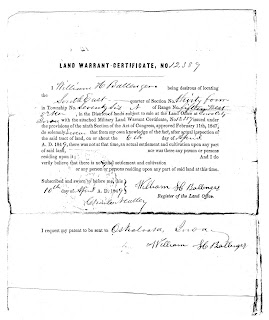 LAND WARRANT-CERTIFICATE, NO. 12389
I William H Ballenger being desirous of locating
the South East quarter of Section No. Thirty four
in Township No. Seventy Six N of Range No.
in the District of lands subject to sale at the Land Office at
Iowa with the attached Military Land Warrant Certificate, No.
the provisions of the ninth section of the Act of Congress, approved February 11th, 1847,
do solemnly Swear that from my own knowledge of the fact, after actual inspection of
the said tract of land, on or about the 6th day of April
A. D. 184 , there was not at that time, an actual settlement and cultivation upon any part
of said land, nor was there any person or persons
residing upon it; And I do
verily believe that there is no settlement and cultivation
or any person or persons residing upon any part of said land at this time.
Subscribed and sworn before me, this
10th day of April A. D. 184
William H Ballenger
Register of the Land Office.
I request my patent to be sent to Oskaloosa, Iowa
William H Ballenger